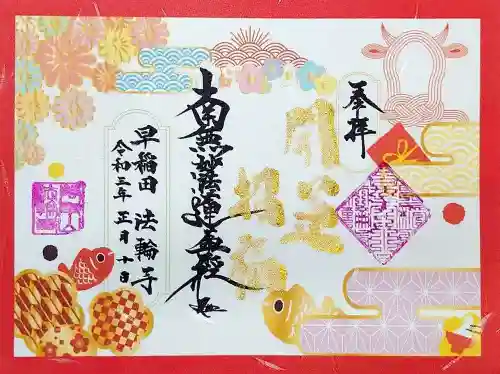 奉拝
開運
招福
南無妙法蓮華経
早稲田 法輪寺
令和三年 正月十日